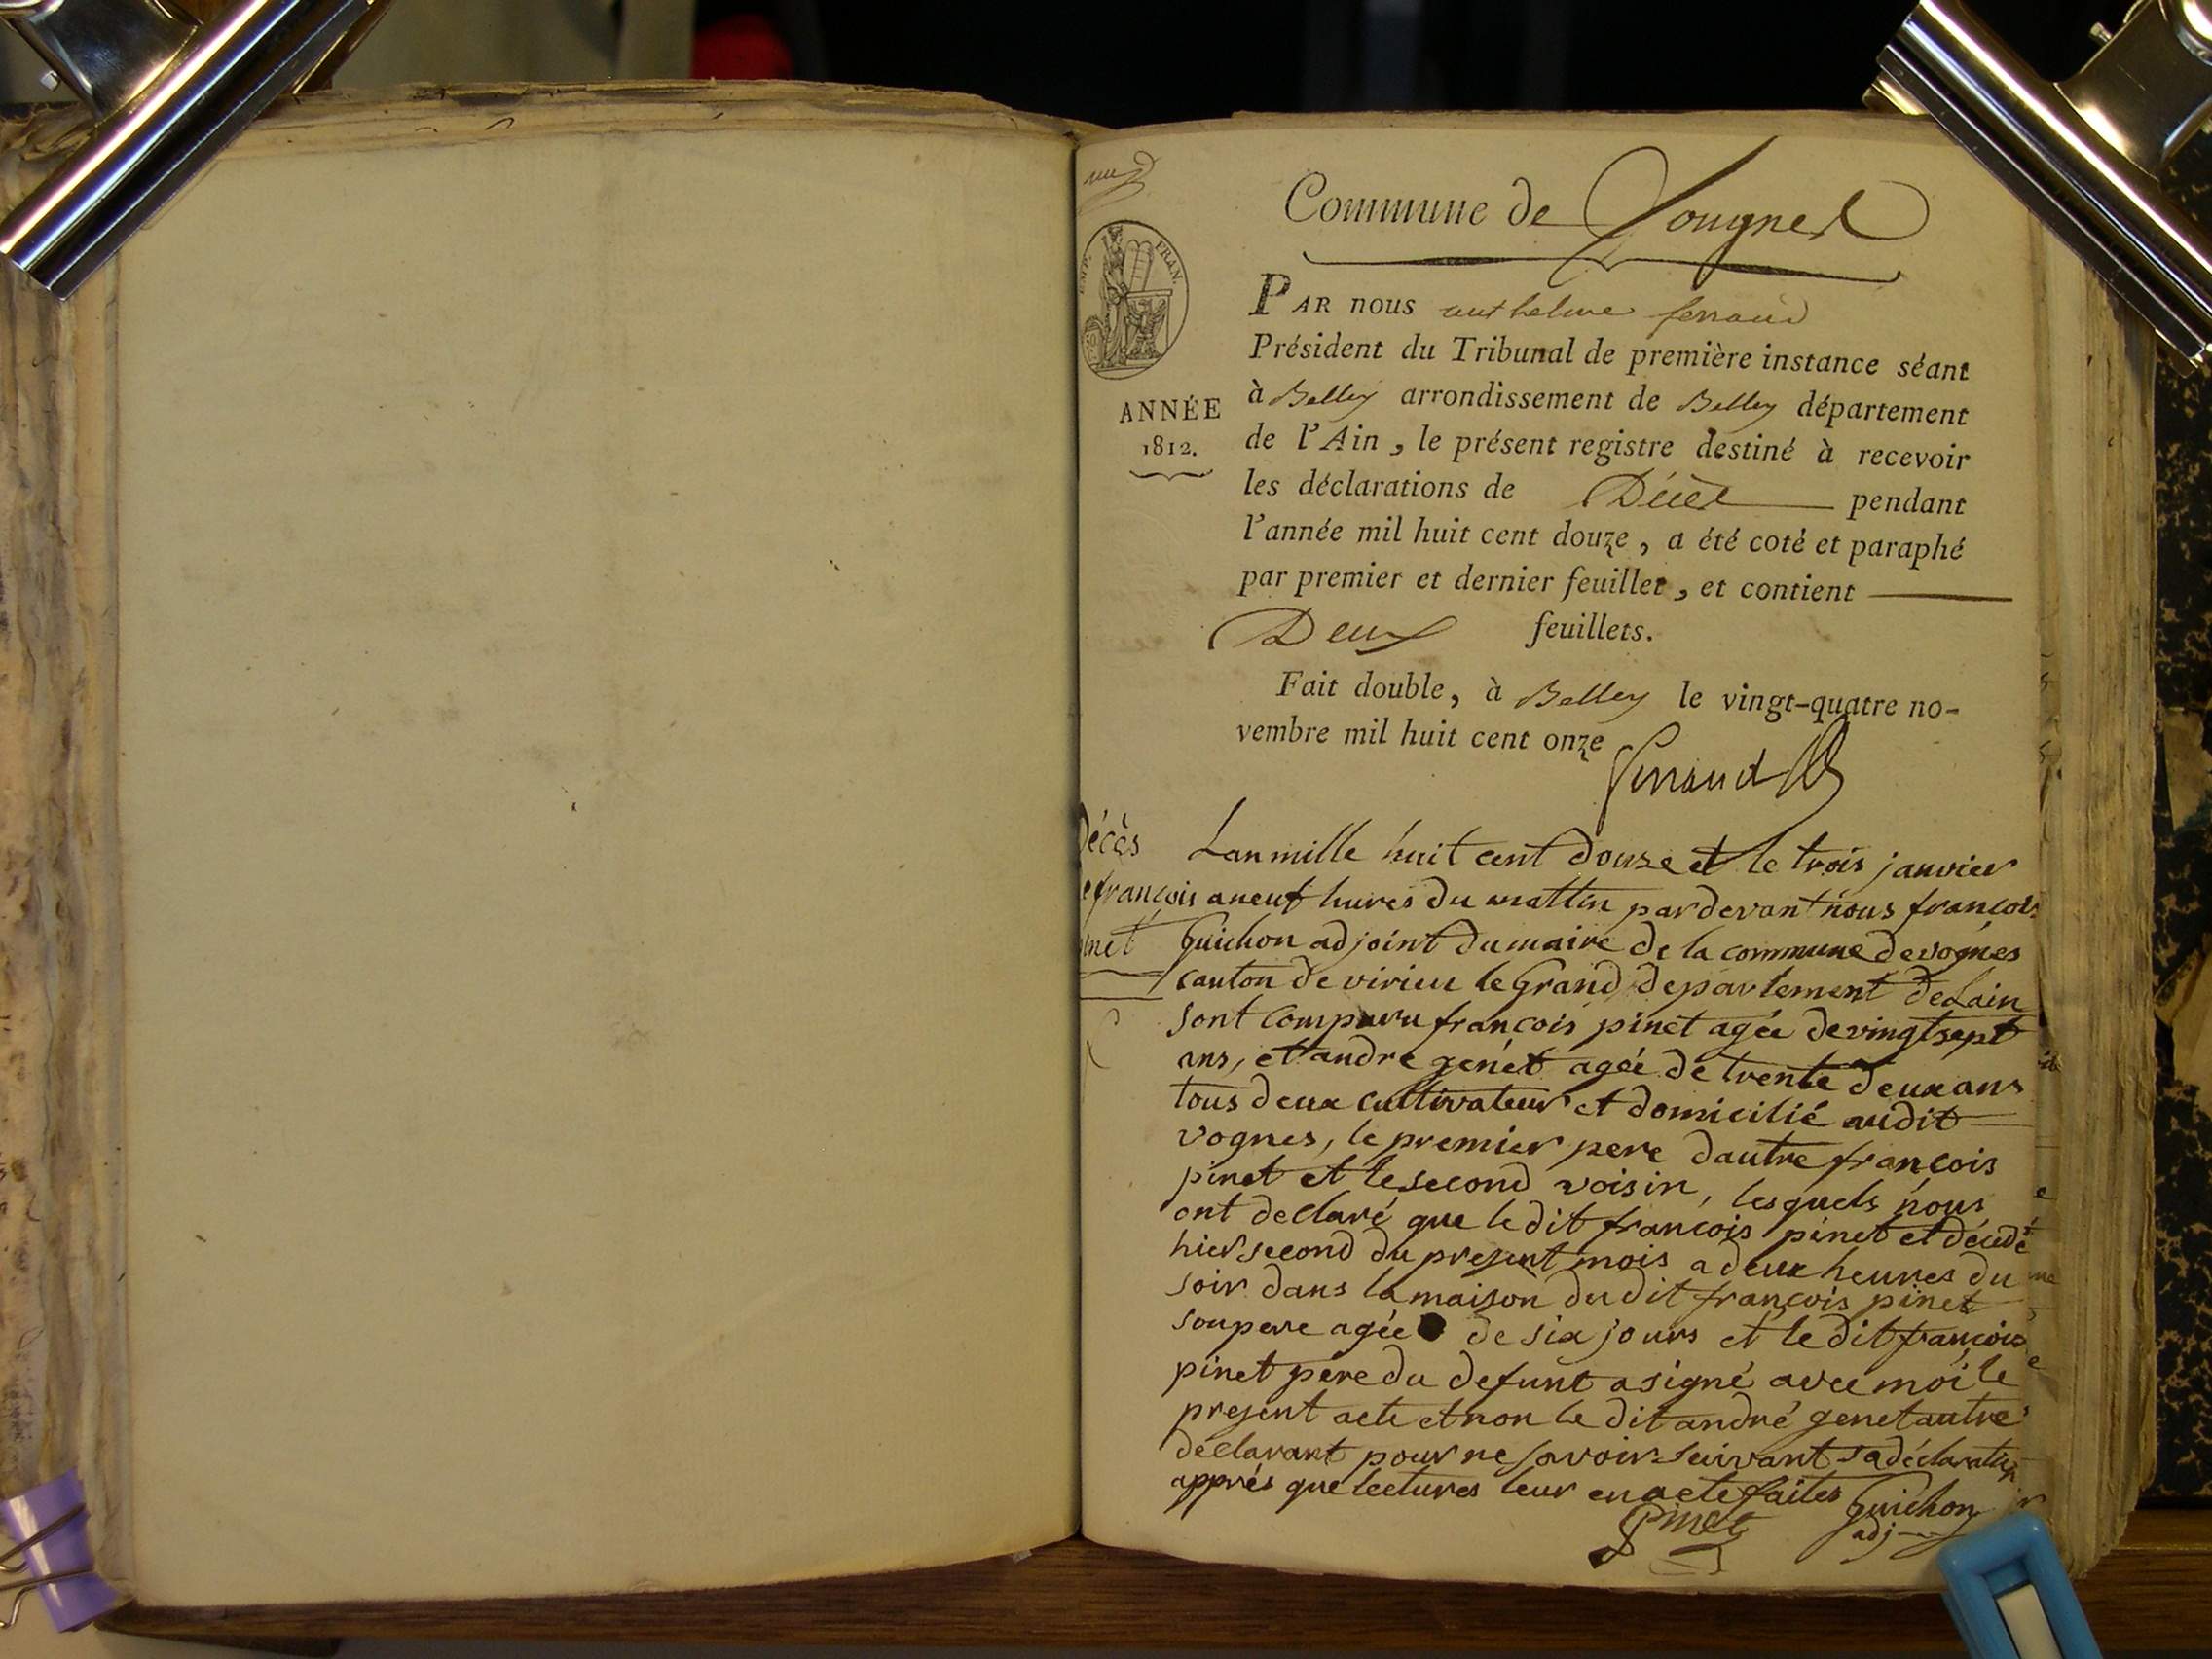 Commune de Vognes
EMP. FRAN.
ANNÉE
1812.
PAR nous anthelme ferraud
Président du Tribunal de première instance séant
à Belley arrondissement de Belley département
de l'Ain, le présent registre destiné à recevoir
les déclarations de Décès pendant
l'année mil huit cent douze, a été coté et paraphé
par premier et dernier feuillet, et contient
Deux feuillets.
Fait double, à Belley le vingt-quatre no-
vembre mil huit cent onze
Ferraud
Décès
e françois
inet
Lan mille huit cent douze et le trois janvier
a neuf hures du mattin par devant nous françois
Guichon adjoint du maire de la commune de vognes
canton de virieu le Grand departement de Lain
sont comparu françois pinet agée de vingt sept
ans, et andre genet agée de trente deux ans
tous deux cultivateur et domicilié audit
vognes, le premier pere dautre françois
pinet et le second voisin, lesquels nous
ont declaré que le dit françois pinet et décédé
hier second du present mois a deux heures du
soir dans la maison du dit françois pinet
son pere agée de six jours et le dit françois
pinet père du defunt a signé avec moi le
present acte et non le dit andré genet autre
déclarant pour ne savoir suivant sa déclaration
apprés que lectures leur en a ete faites Guichon
Pinet adj